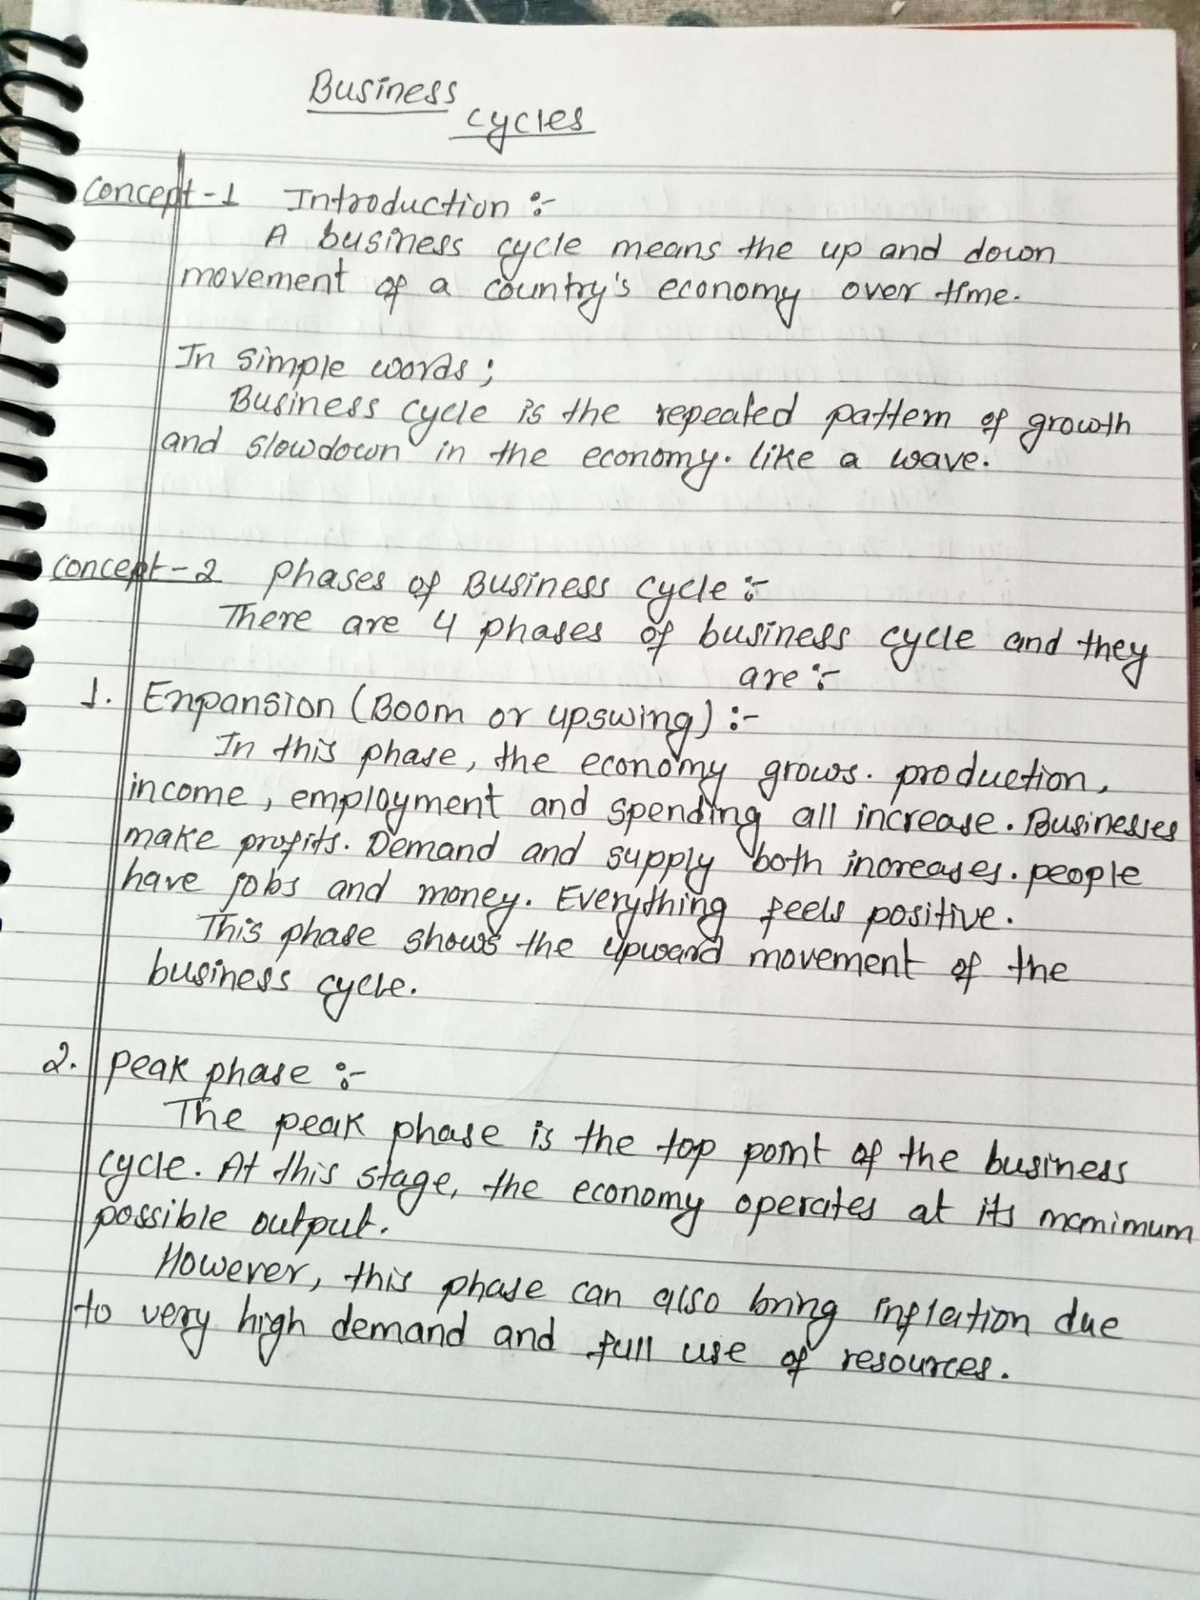 Business
cycles
Concept-1 Introduction :-
A business cycle means the up and down
movement of a country's economy over time.
In simple words;
Business cycle is the repeated pattern of growth
and slowdown in the economy. like a wave.
Concept-2 phases of Business cycle :-
There are 4 phases of business cycle and they
are :-
1. Expansion (Boom or upswing) :-
In this phase, the economy grows. production,
income, employment and spending all increase. Businesses
make profits. Demand and supply both increases. people
have jobs and money. Everything feels positive.
This phase shows the upward movement of the
business cycle.
2. peak phase :-
The peak phase is the top point of the business
cycle. At this stage, the economy operates at its maximum
possible output.
However, this phase can also bring inflation due
to very high demand and full use of resources.